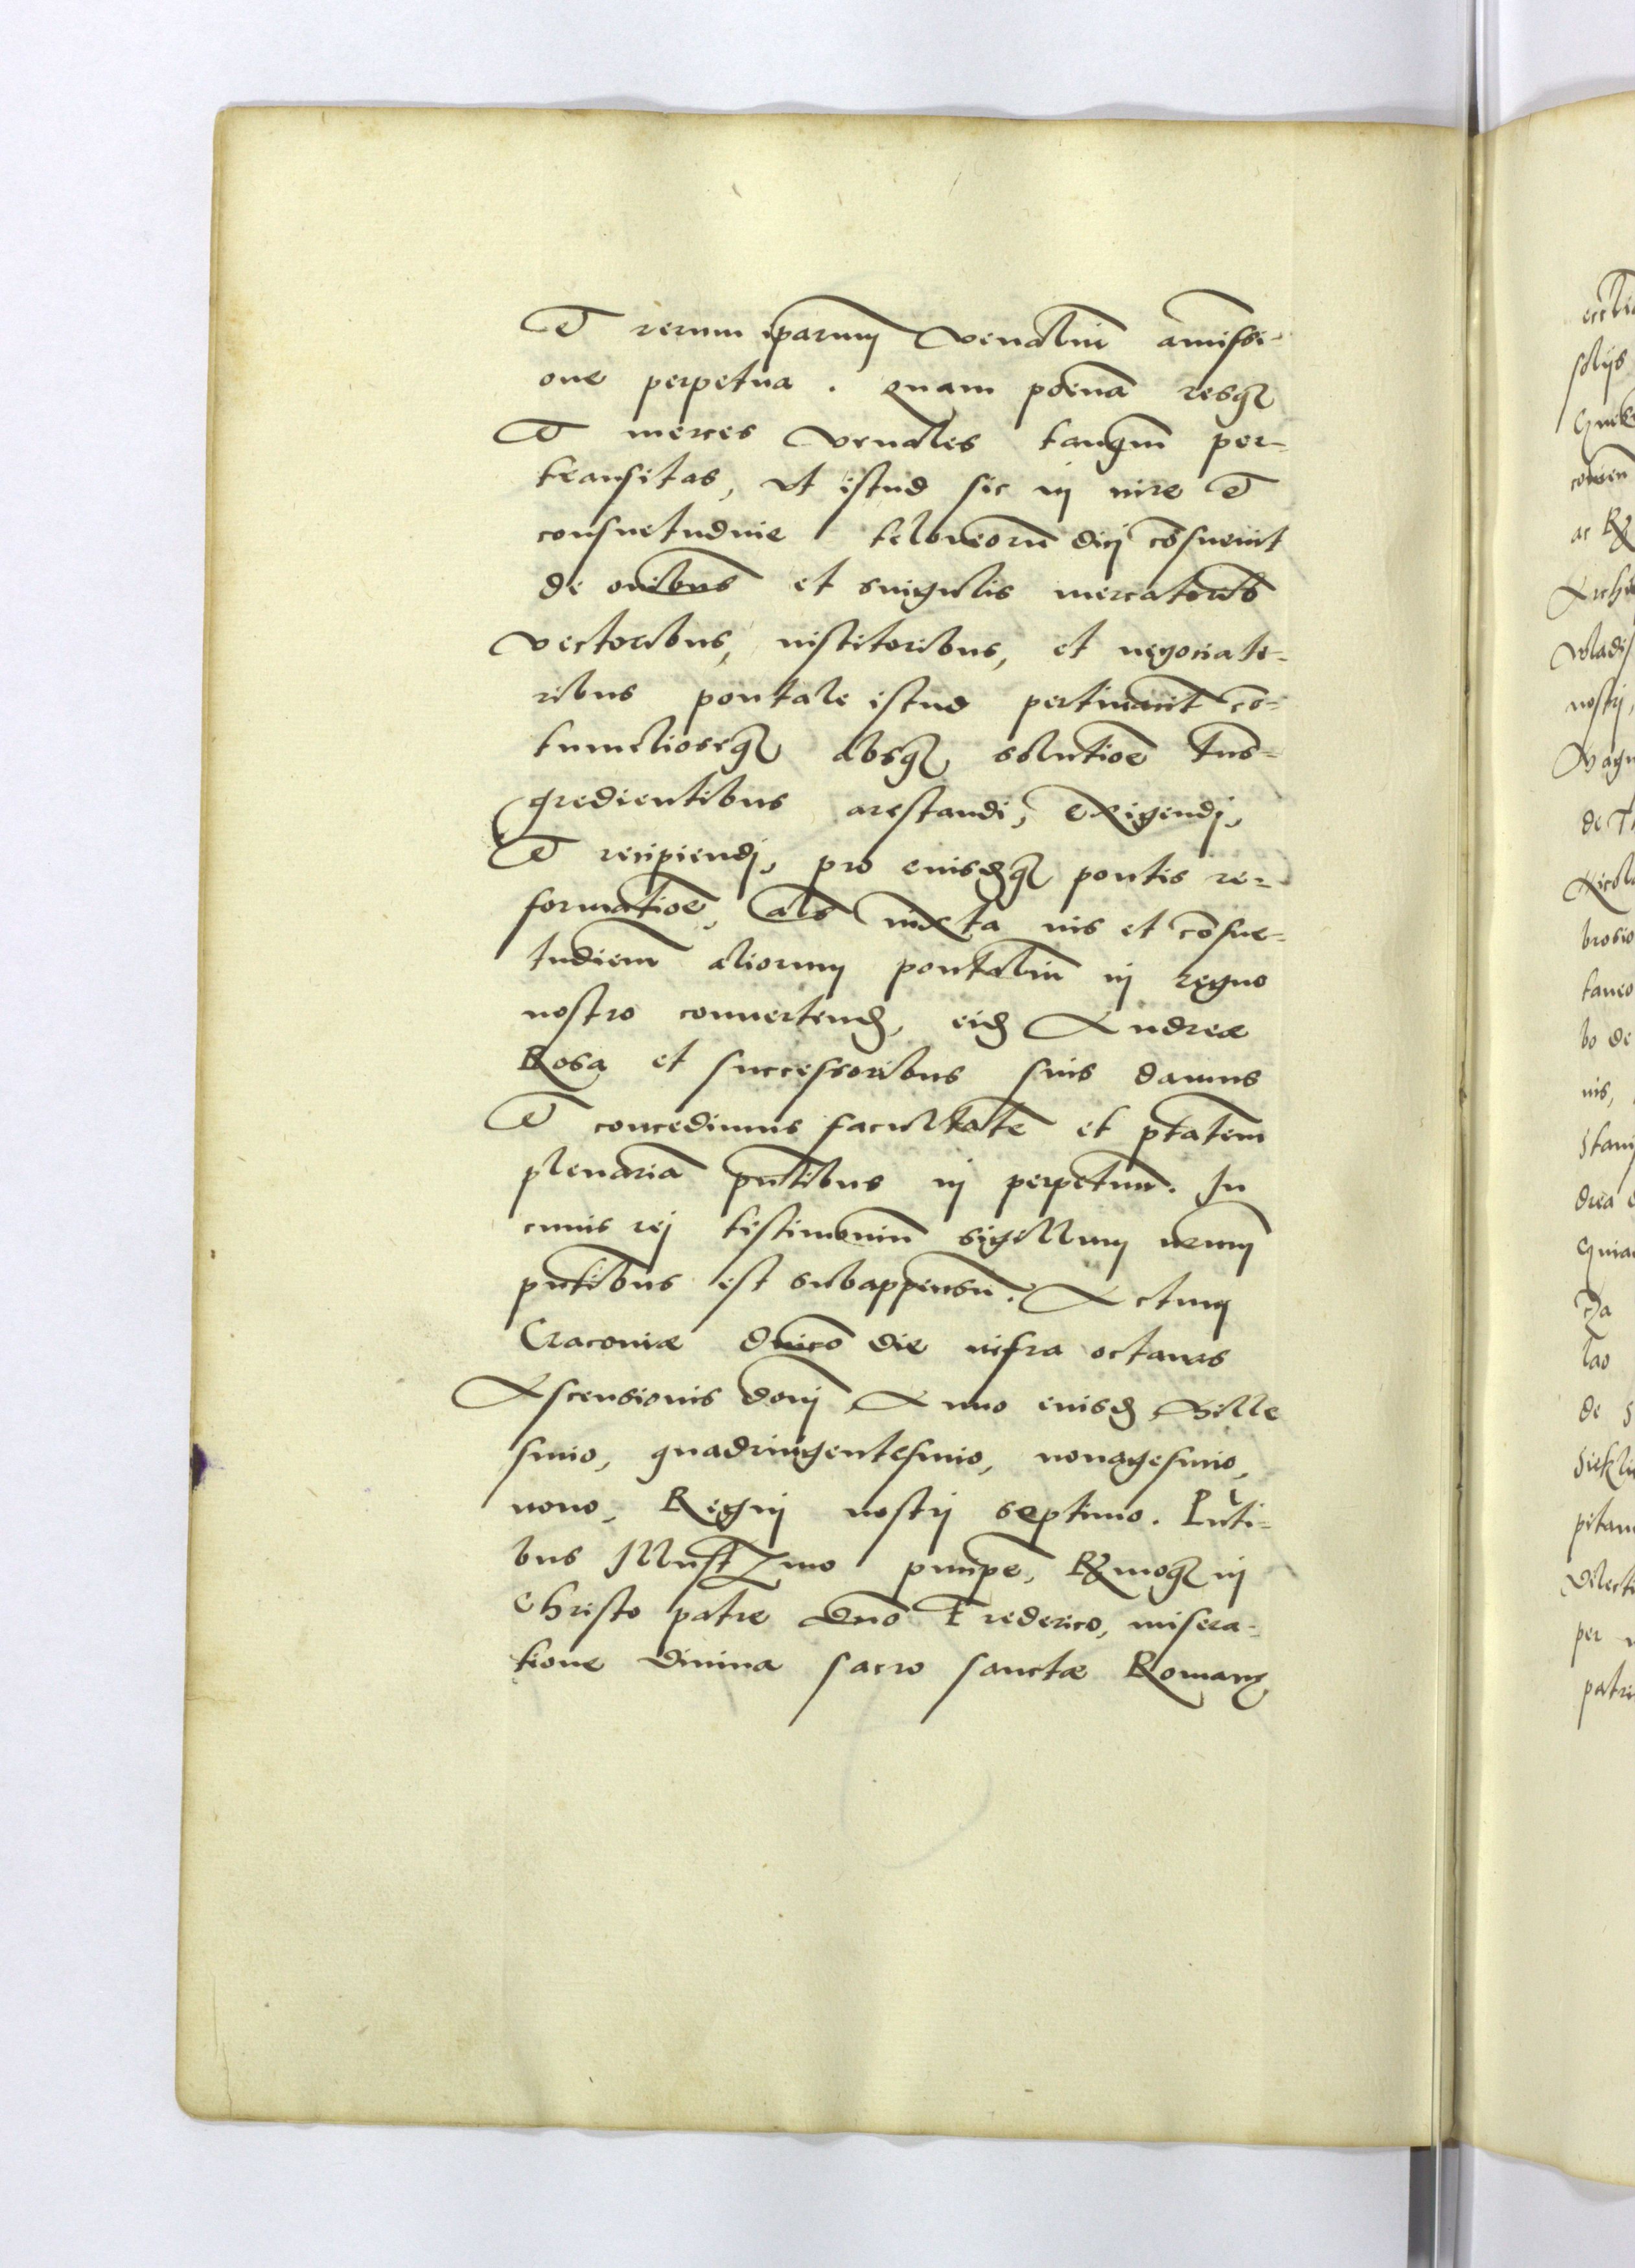 Et rerum iparum venaliū amissi-
one perpetua. quam poenā resq3
Et merces venales tanq̄m per-
transitas, ut istud sic in iure Et
consuetudine teloneorū dici cōsuevit
de oīibus et singulis mercatorib9
vectoribus, institoribus, et negociato-
ribus pontale istud pertinacit cō-
tumelioseq3 absq3 solutiōe trās-
gredientibus arestandi, Exigendi,
Et recipiendi, pro eiusdq3 pontis re-
formatiōe, als iuxta ius et cōsue-
tudiem̄ aliorum pontaliū in regno
nostro convertend, eid Andreæ
Rosa et successoribus suis damus
Et concedimus facultatē et ptatem̄
plenariā pn̄tibus in perpetuū. In
cuius rei testimoniū sigillum nr̄um
pn̄tibus est subappensū. Actum
Cracoviæ dn̄ico die infra octavas
Ascensionis dom̄i Anno eiusd Mille
simo, quadringentesimo, nonagesimo,
nono, Regni nostri septimo. Pn̄ti-
bus Illustzmo pn̄cipe, Rzmoq3 in
Christo patre dn̄o Frederico, misera-
tione divina sacro sanctæ Romanę